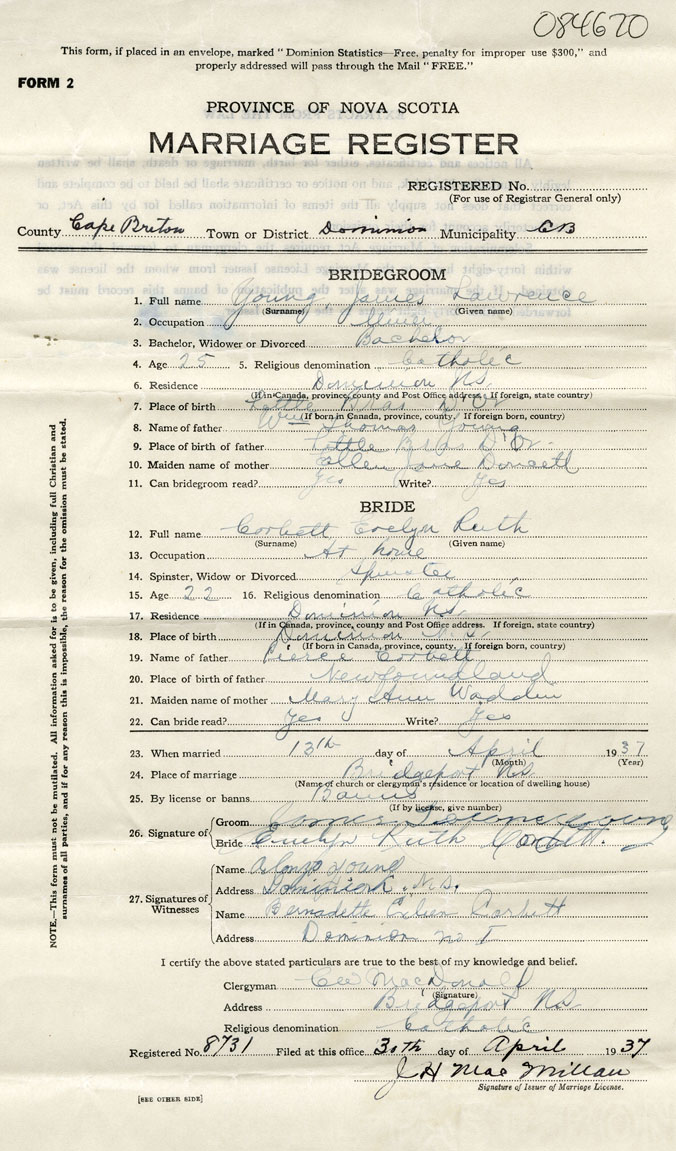 084670
This form, if placed in an envelope, marked "Dominion Statistics—Free, penalty for improper use $300," and
properly addressed will pass through the Mail "FREE."
FORM 2
PROVINCE OF NOVA SCOTIA
MARRIAGE REGISTER
REGISTERED No.
(For use of Registrar General only)
County Cape Breton Town or District Dominion Municipality CB
BRIDEGROOM
1. Full name Young, James Lawrence
(Surname) (Given name)
2. Occupation Miner
3. Bachelor, Widower or Divorced Bachelor
4. Age 25 5. Religious denomination Catholic
6. Residence Dominion NS
(If in Canada, province, county and Post Office address. If foreign, state country)
7. Place of birth Little Bras D'Or
(If born in Canada, province, county. If foreign born, country)
8. Name of father Wm Thomas Young
9. Place of birth of father Little Bras D'Or
10. Maiden name of mother Ellen Jane Doucett
11. Can bridegroom read? Yes Write? Yes
BRIDE
12. Full name Corbett Evelyn Ruth
(Surname) (Given name)
13. Occupation At home
14. Spinster, Widow or Divorced Spinster
15. Age 22 16. Religious denomination Catholic
17. Residence Dominion NS
(If in Canada, province, county and Post Office address. If foreign, state country)
18. Place of birth Dominion N.S.
(If born in Canada, province, county. If foreign born, country)
19. Name of father Pierce Corbett
20. Place of birth of father Newfoundland
21. Maiden name of mother Mary Ann Wadden
22. Can bride read? Yes Write? Yes
23. When married 13th day of April 1937
(Month) (Year)
24. Place of marriage Bridgeport NS
(Name of church or clergyman's residence or location of dwelling house)
25. By license or banns Banns
(If by license, give number)
26. Signature of
Groom James Lawrence Young
Bride Evelyn Ruth Corbett.
27. Signatures of Witnesses
Name Alonzo Young
Address Dominion N.S.
Name Bernadette Corbett
Address Dominion No 1
I certify the above stated particulars are true to the best of my knowledge and belief.
Clergyman MacDonald
(Signature)
Address Bridgeport NS
Religious denomination Catholic
Registered No. 8731 Filed at this office 30th day of April 1937
J H MacMillan
Signature of Issuer of Marriage License.
[SEE OTHER SIDE]
NOTE.—This form must not be mutilated. All information asked for is to be given, including full Christian and
surnames of all parties, and if for any reason this is impossible, the reason for the omission must be stated.